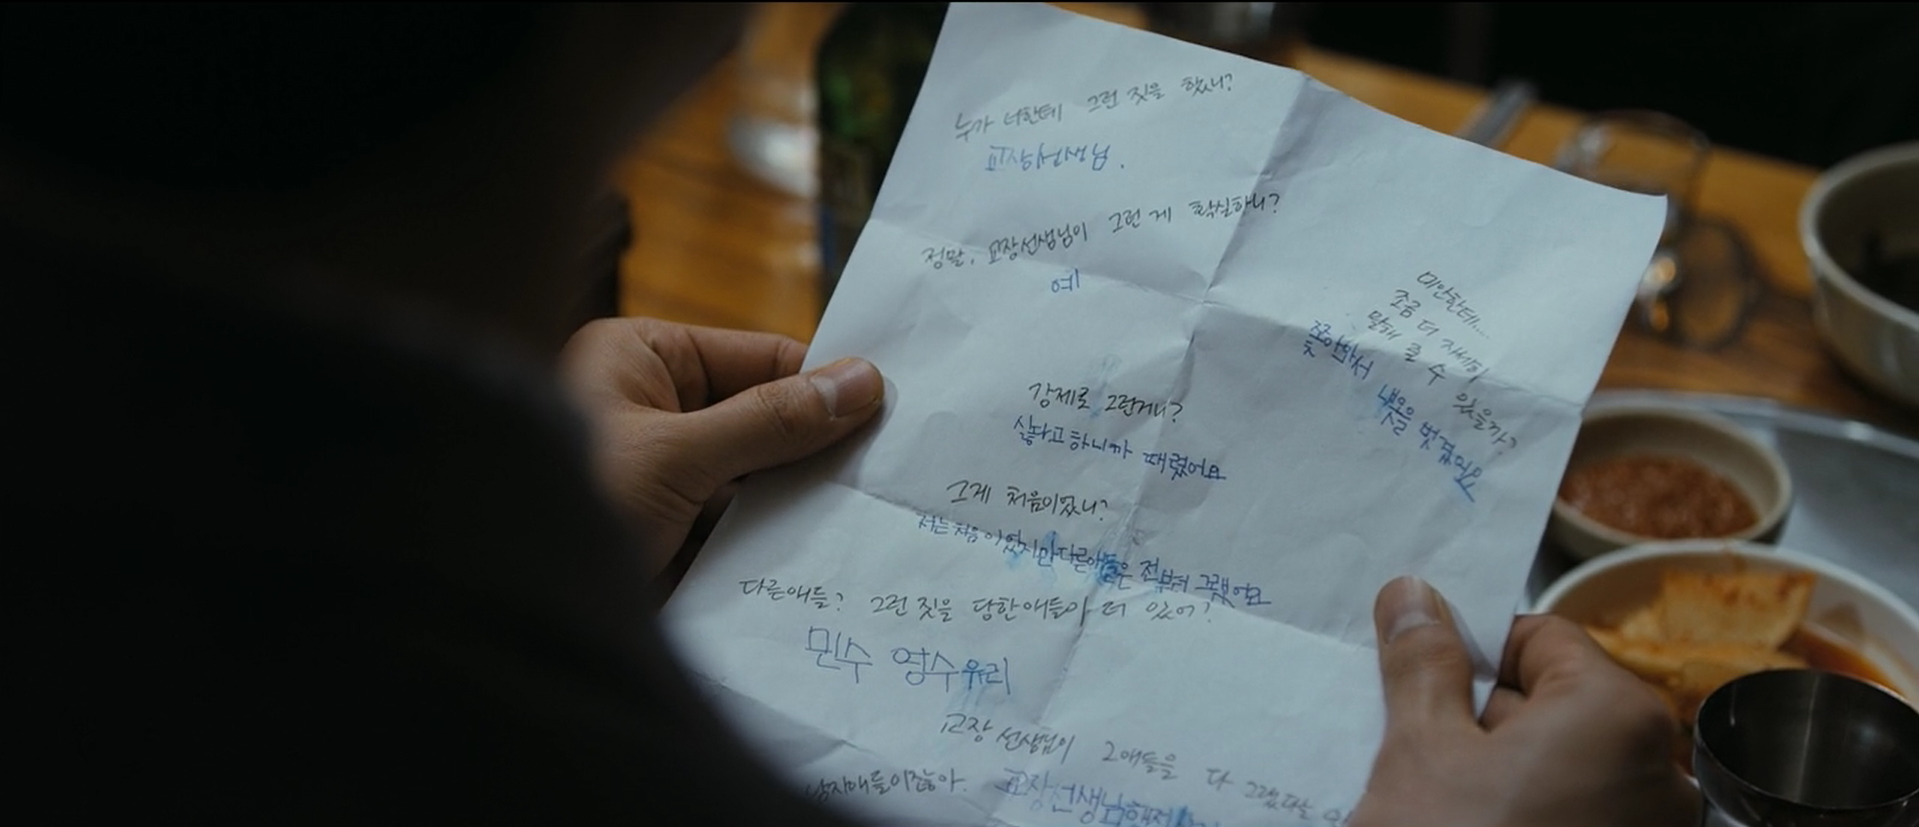 누가 너한테 그런 짓을 했니?
교장선생님.
정말, 교장선생님이 그런 게 확실하니?
예
미안한데...
조금 더 자세히
말해 줄 수 있을까?
쫓아와서 내옷을 벗겼어요
강제로 그런거니?
싫다고하니까 때렸어요
그게 처음이었니?
저는처음이었지만다른애들은 전부터 그랬어요
다른애들? 그런 짓을 당한애들이 더 있어?
민수 영수유리
교장 선생님이 그애들을 다 그랬다는
남자애들이잖아. 교장선생님